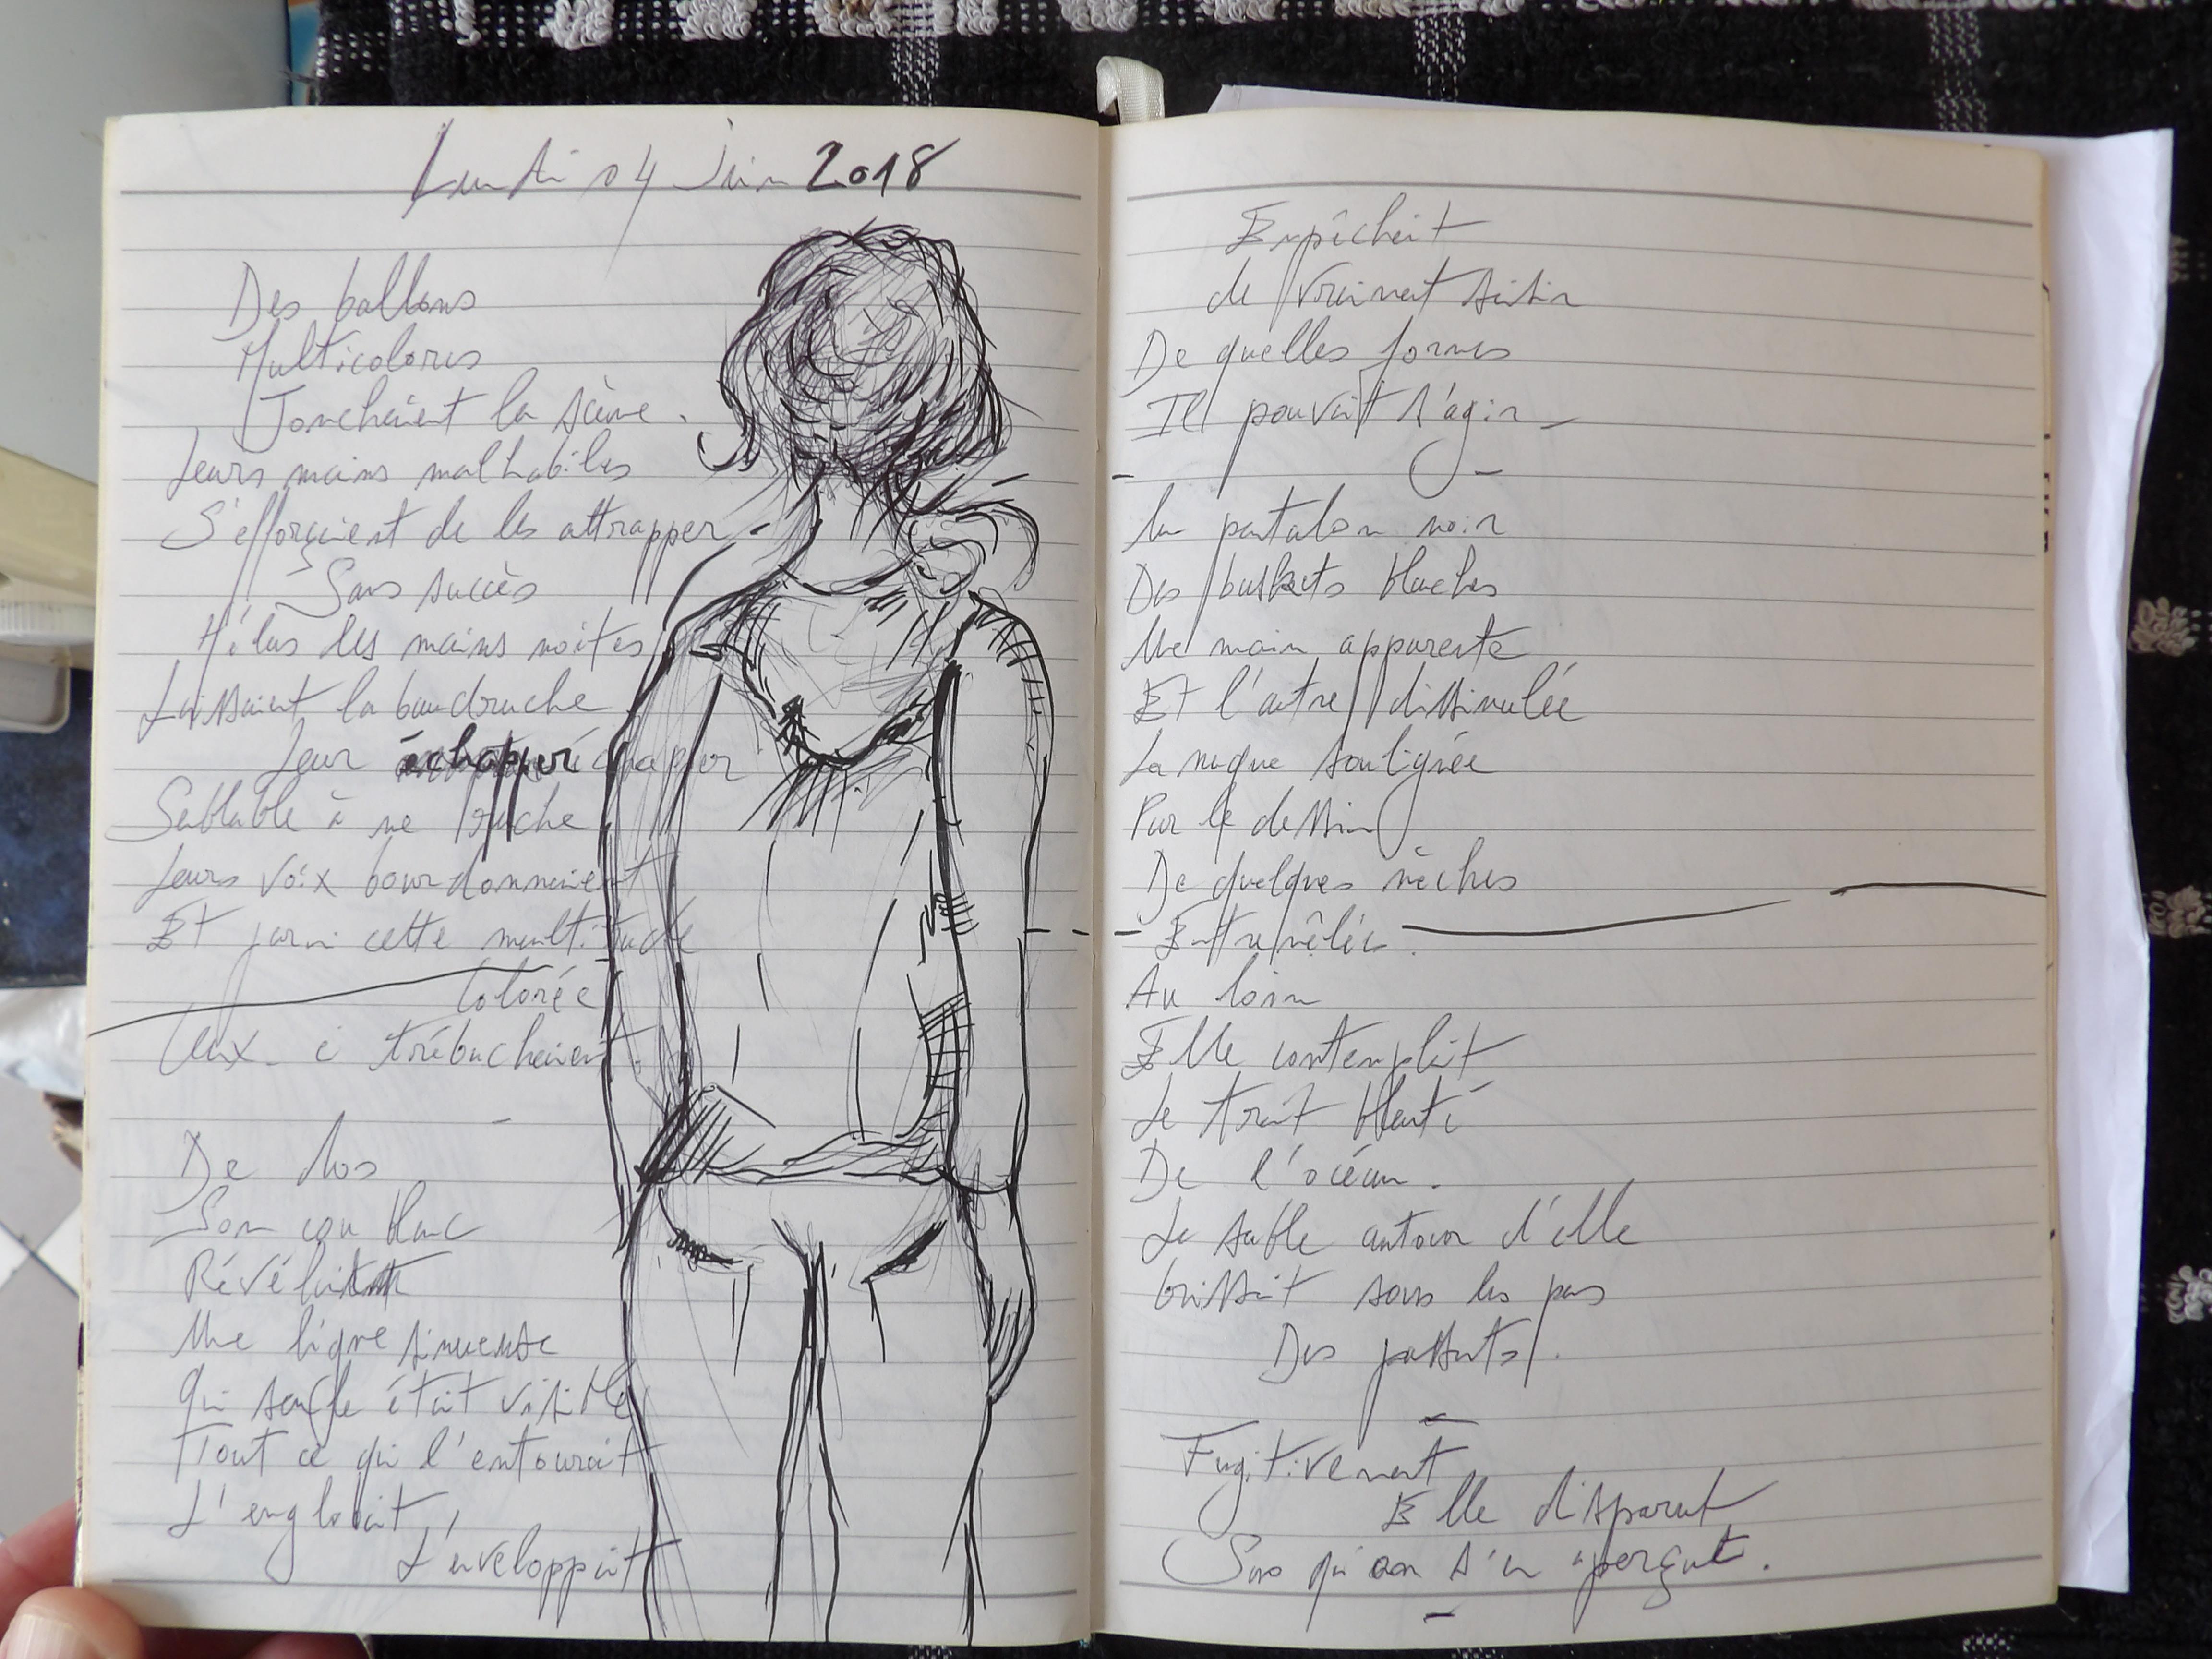 Lundi 04 Juin 2018
Des ballons
Multicolores
Jonchaient la scène.
Leurs mains malhabiles
S'efforçaient de les attrapper
Sans succès
Hélas les mains moites
Laissaient la baudruche
Leur échapper échapper
Semblable à une ruche
Leurs voix bourdonnaient
Et parmi cette multitude
Colorée
Ceux-ci trébuchaient.
De dos
Son cou blanc
Révélait
Une ligne sinueuse
Qui seule était visible
Tout ce qui l'entourait
L'englobait,
L'enveloppait
Empêchait
de vraiment saisir
De quelles formes
Il pouvait s'agir_
Un pantalon noir
Des baskets blanches
Une main apparente
Et l'autre dissimulée
La nuque soulignée
Par le dessin
De quelques mèches
Entremêlées.
Au loin
Elle contemplait
Le trait bleuté
De l'océan.
Le sable autour d'elle
Crissait sous les pas
Des passants.
Fugitivement
Elle disparut
Sans qu'on s'en aperçut.